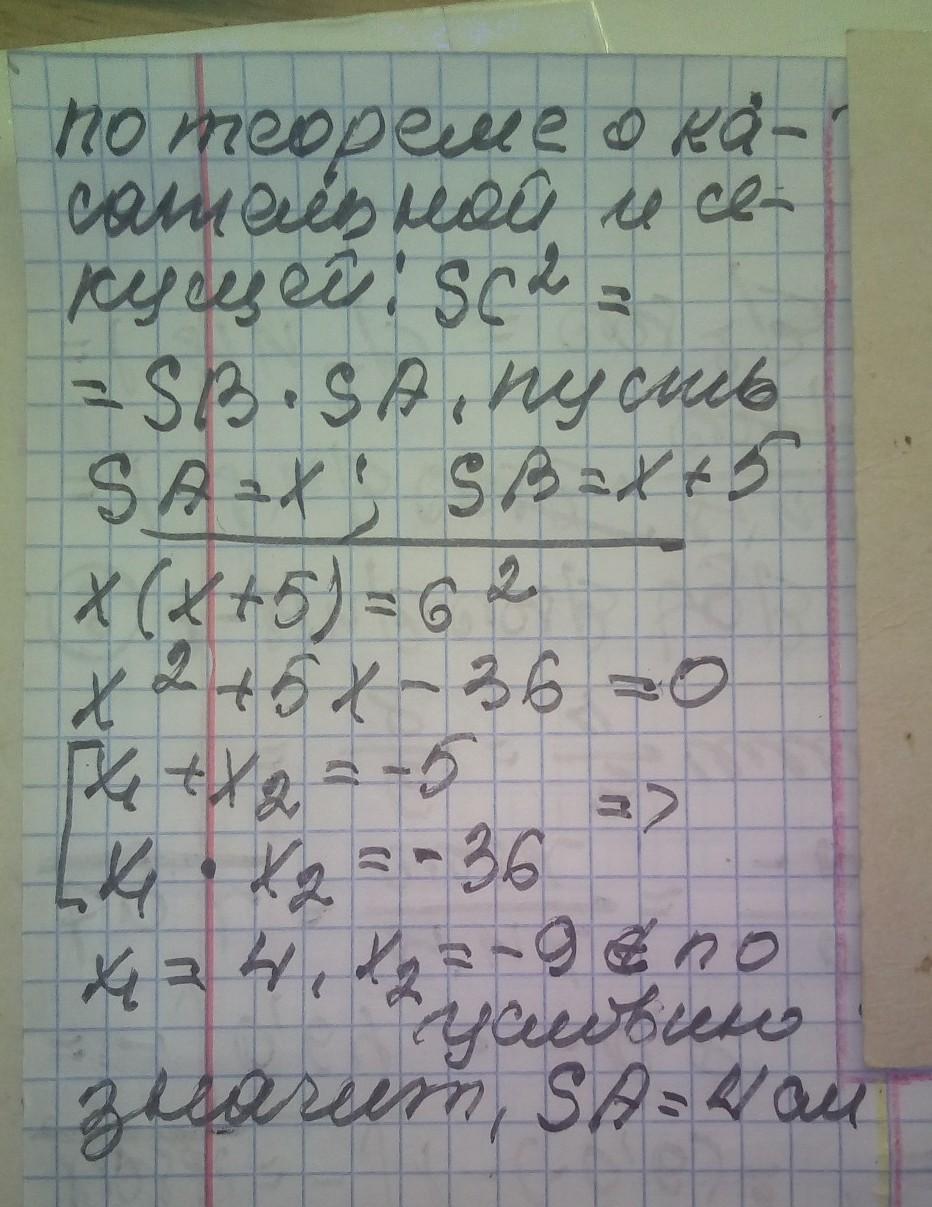 по теореме о ка-
сательной и се-
кущей: SC² =
= SB · SA, пусть
SA = x ; SB = x + 5
x(x+5) = 6²
x² + 5x - 36 = 0
x₁ + x₂ = -5
=>
x₁ · x₂ = -36
x₁ = 4, x₂ = -9 ∉ по
условию
значит, SA = 4 см